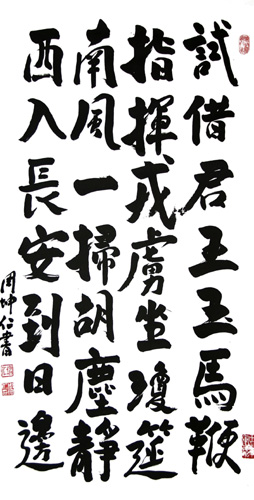 試借君王玉馬鞭
指揮戎虜坐瓊筵
南風一掃胡塵静
西入長安到日邊
周坤仁書